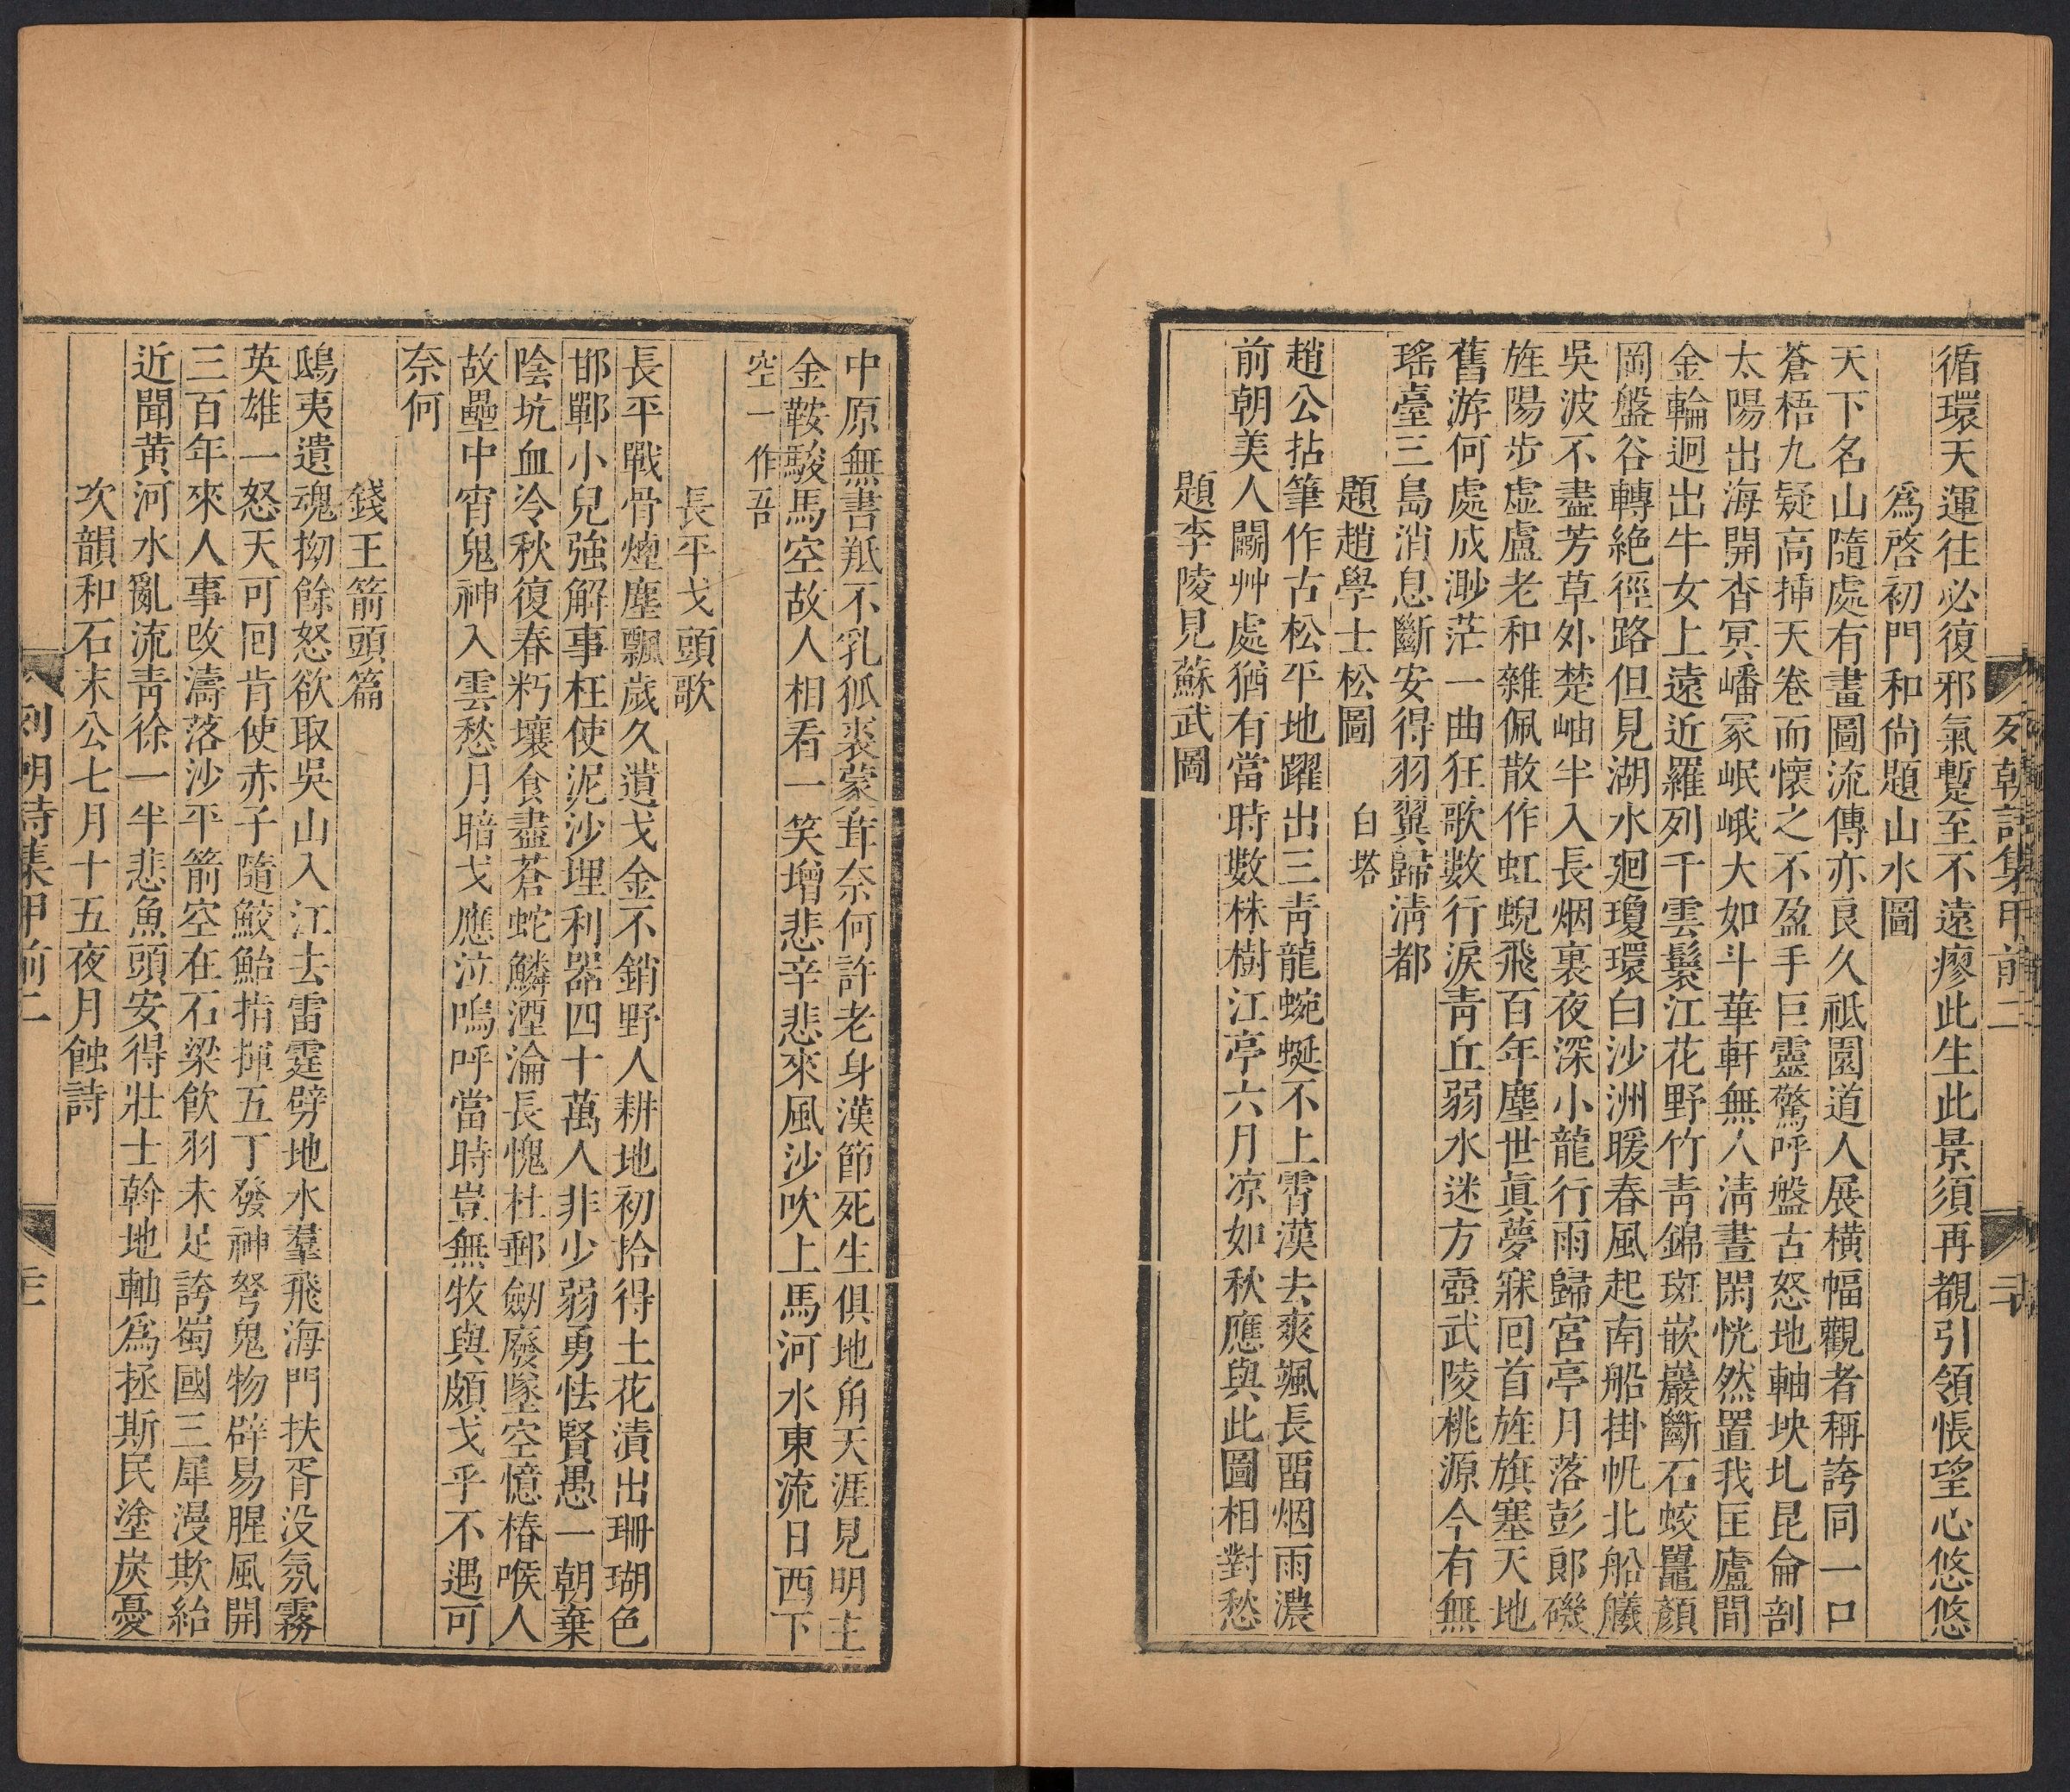 列朝詩集甲前二
二十
循環天運往必復邪氣蹔至不遠瘳此生此景須再覩引領悵望心悠悠
爲啓初門和尙題山水圖
天下名山隨處有畫圖流傳亦良久祗園道人展横幅觀者稱誇同一口
蒼梧九疑高揷天卷而懷之不盈手巨靈驚呼盤古怒地軸坱圠昆侖剖
太陽出海開杳冥嶓冢岷峨大如斗華軒無人淸晝閑恍然置我匡廬間
金輪迥出牛女上遠近羅列千雲鬟江花野竹靑錦斑嵌巖斷石蛟鼉顏
岡盤谷轉絶徑路但見湖水廻瓊環白沙洲暖春風起南船掛帆北船艤
吳波不盡芳草外楚岫半入長烟裏夜深小龍行雨歸宮亭月落彭郞磯
旌陽步虛盧老和雜佩散作虹蜺飛百年塵世眞夢寐囘首旌旗塞天地
舊游何處成渺茫一曲狂歌數行淚靑丘弱水迷方壺武陵桃源今有無
瑤臺三島消息斷安得羽翼歸淸都
題趙學士松圖　白塔
趙公拈筆作古松平地躍出三靑龍蜿蜒不上霄漢去爽颯長畱烟雨濃
前朝美人鬭艸處猶有當時數株樹江亭六月凉如秋應與此圖相對愁
題李陵見蘇武圖
中原無書羝不乳狐裘蒙茸奈何許老身漢節死生俱地角天涯見明主
金鞍駿馬空故人相看一笑增悲辛悲來風沙吹上馬河水東流日西下
空一作吾
長平戈頭歌
長平戰骨煙塵飄歲久遺戈金不銷野人耕地初拾得土花漬出珊瑚色
邯鄲小兒強解事枉使泥沙埋利器四十萬人非少弱勇怯賢愚一朝棄
陰坑血冷秋復春朽壤食盡蒼蛇鱗湮淪長愧杜郵劒廢墜空憶樁喉人
故壘中宵鬼神入雲愁月暗戈應泣嗚呼當時豈無牧與頗戈乎不遇可
奈何
錢王箭頭篇
鴟夷遺魂拗餘怒欲取吳山入江去雷霆劈地水羣飛海門扶胥没氛霧
英雄一怒天可囘肯使赤子隨鮫鮐指揮五丁發神弩鬼物辟易腥風開
三百年來人事改濤落沙平箭空在石梁飮羽未足誇蜀國三犀漫欺紿
近聞黄河水亂流靑徐一半悲魚頭安得壯士斡地軸爲拯斯民塗炭憂
次韻和石末公七月十五夜月蝕詩
列朝詩集甲前二